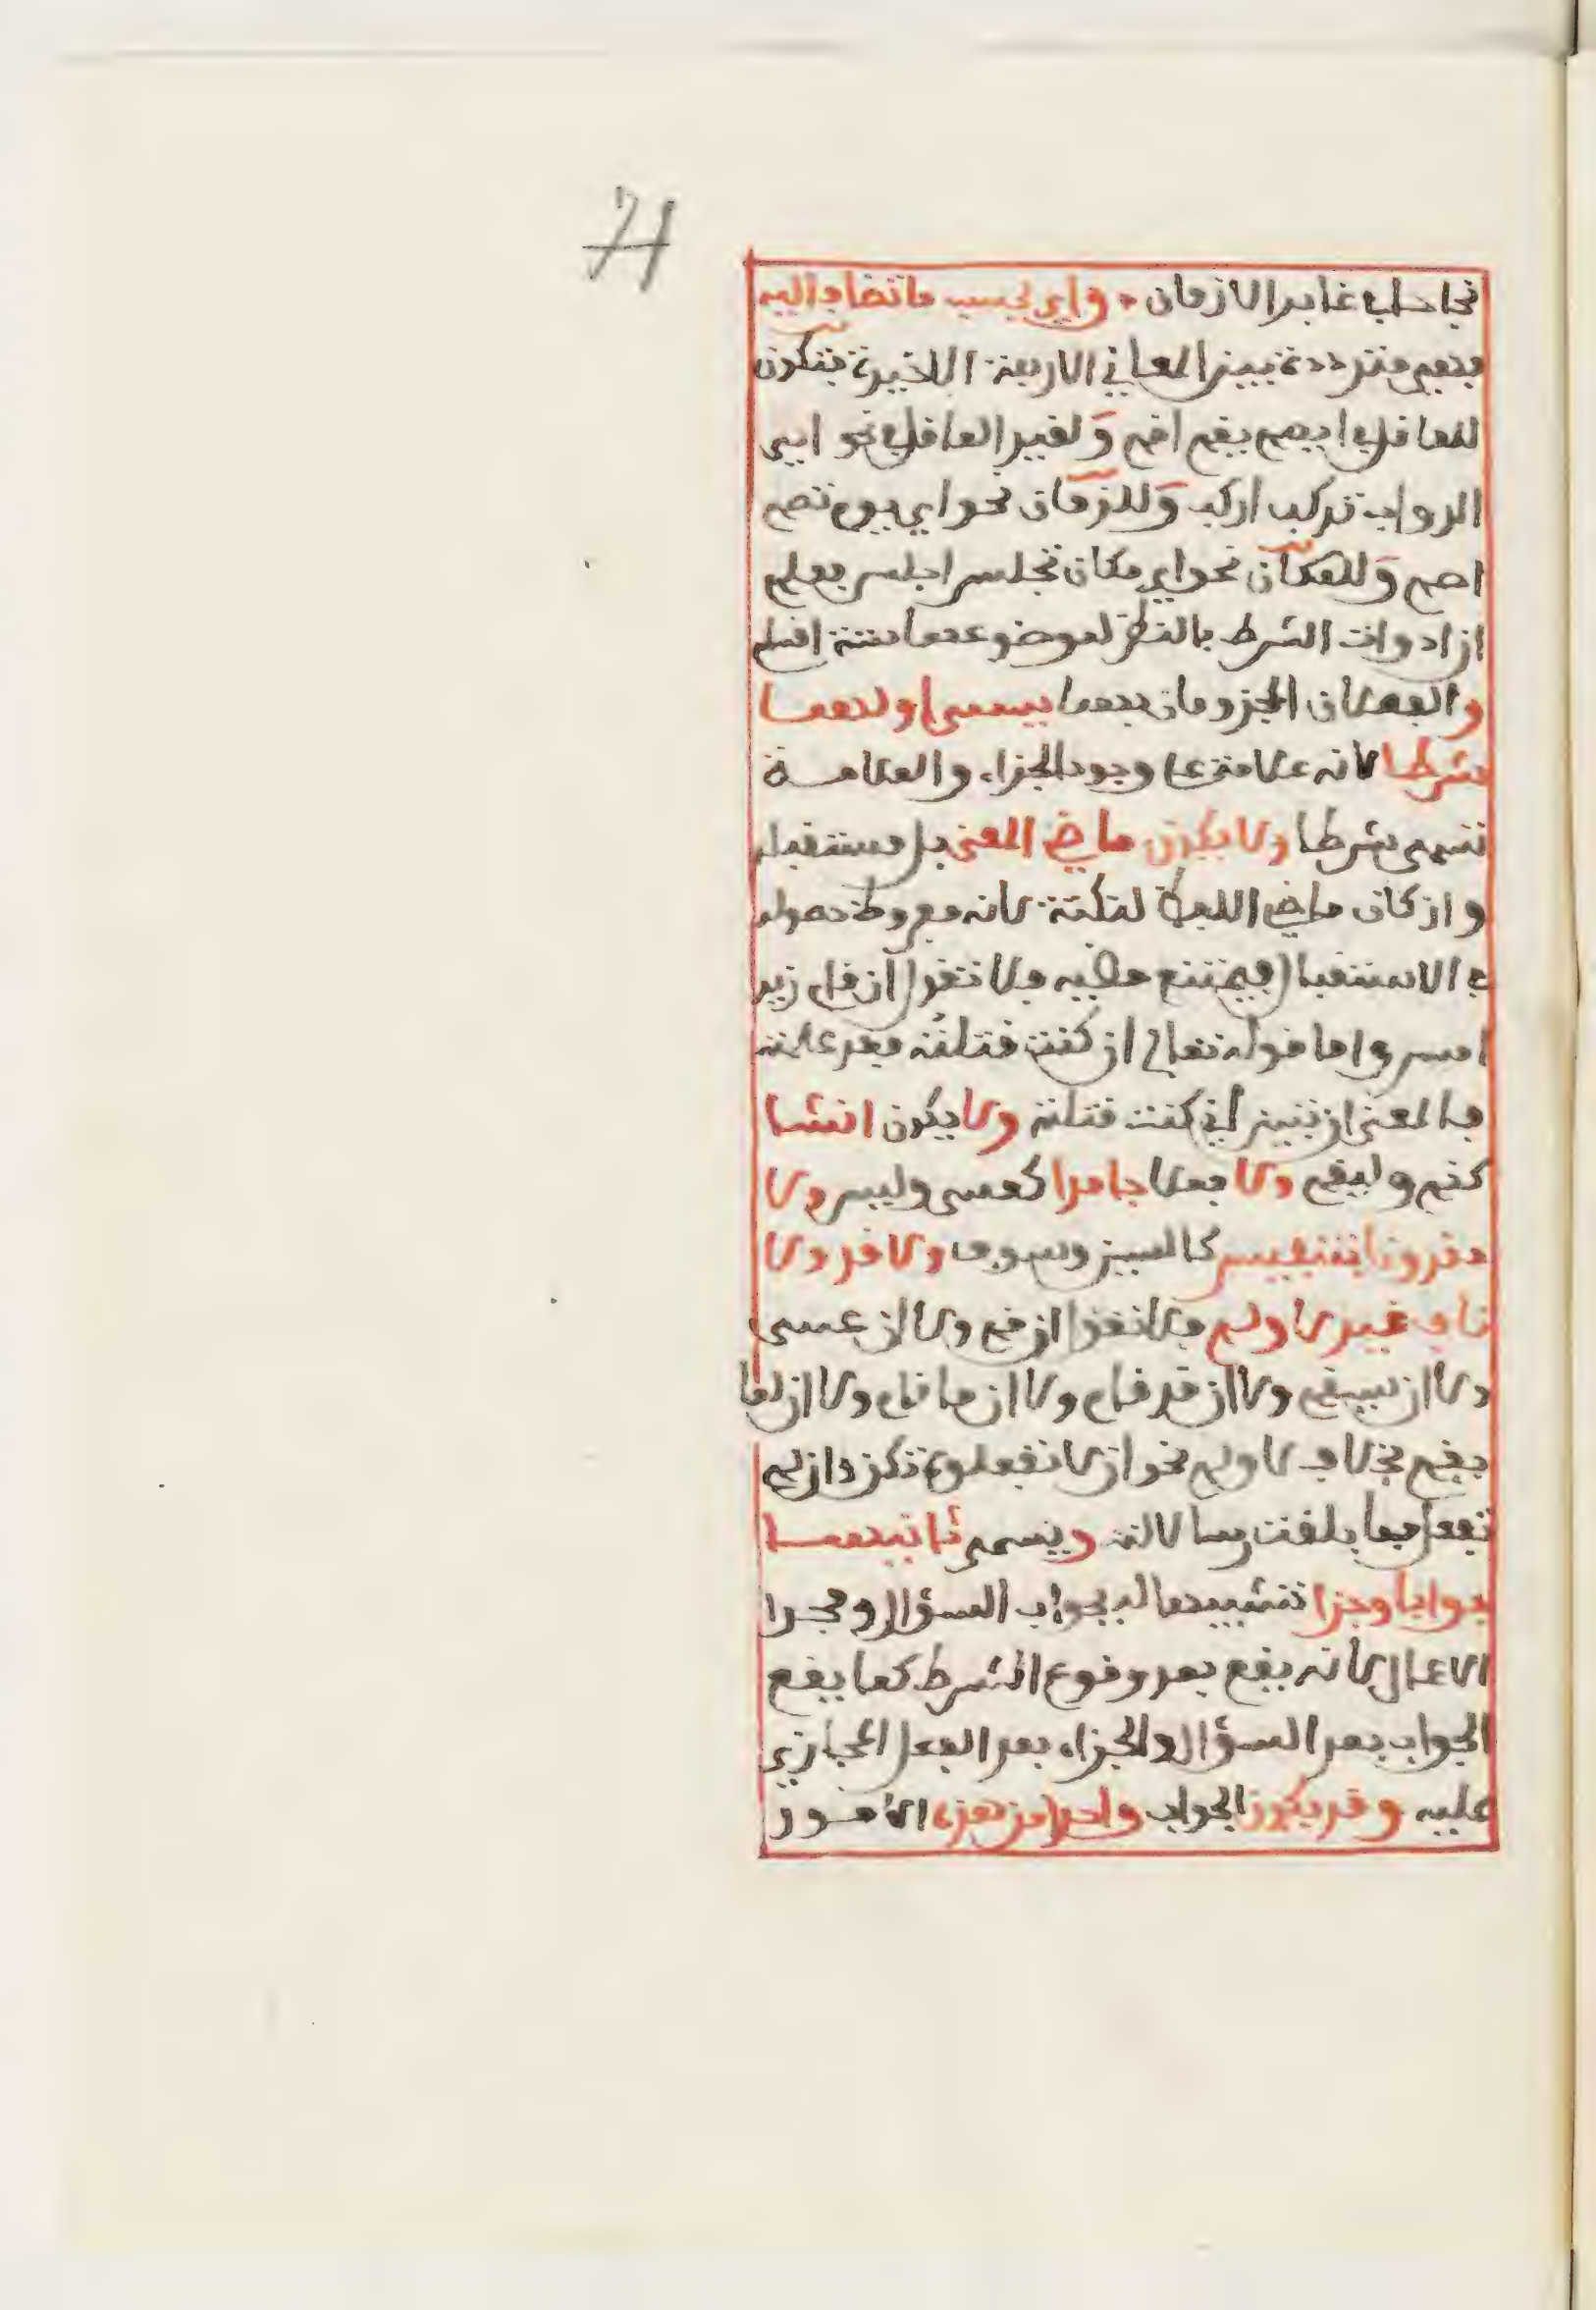 71
نجاحا في غابر الازمان • واي بحسب ما تضاف اليه
فهي مترددة بين المعاني الاربعة الاخيرة فتكون
للعاقل ايهم يقم اقم ولغير العاقل نحو اي
الدواب تركب اركب وللزمان نحو اي يوم تصم
اصم وللمكان نحو اي مكان تجلس اجلس فعلم
ان ادوات الشرط بالنظر لموضوعها ستة اقسام
والفعلان المجزومان بها يسمى اولهما
شرطا لانه علامة على وجود الجزاء والعلامة
تسمى شرطا ولا يكون ماضي المعنى بل مستقبله
وان كان ماضي اللفظ لنكتة لانه مفروط حصوله
في الاستقبال فيمتنع مضيه فلا تقول ان قام زيد
امس واما قوله تعالى ان كنت قلته فقد علمته
فالمعنى ان تبين اني كنت قلته ولا يكون انشا
كقم وليقم ولا فعلا جامدا كعسى وليس ولا
مقرونا بتنفيس كالسين وسوف ولا قد ولا
ناف غير لا ولم فلا تقول ان قم ولا ان عسى
ولا ان سيقم ولا ان قد قام ولا ان ما قام ولا ان لما
يقم بخلاف لا ولم نحو ان لا تفعلوه تكن وان لم
تفعل فما بلغت رسالاته ويسمى ثانيهما
جوابا وجزا تشبيها له بجواب السؤال وجزا
الاعمال لانه يقع بعد وقوع الشرط كما يقع
الجواب بعد السؤال والجزاء بعد الفعل المجازى
عليه وقد يكون الجواب واحدا من هذه الامور